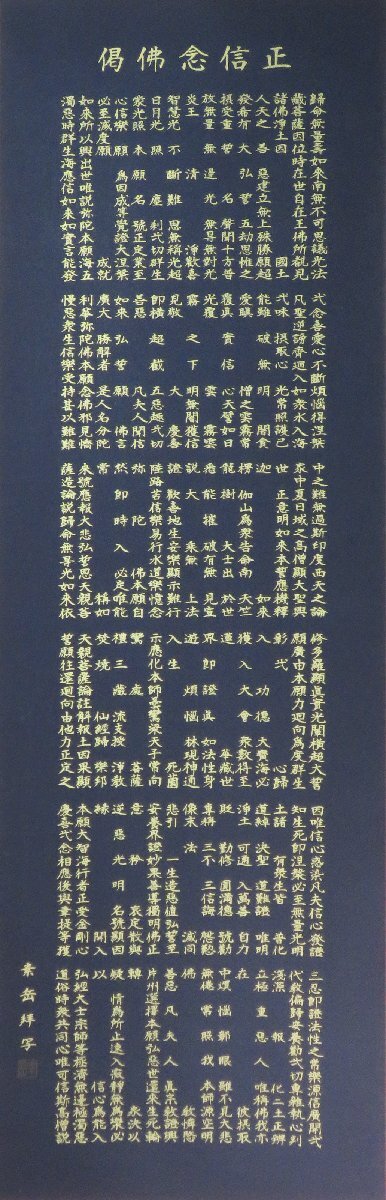 正信念佛偈
歸命無量壽如來南無不可思議光法
藏菩薩因位時在世自在王佛所覩見
諸佛淨土因國土
人天之善惡建立無上殊勝願超
發希有大弘誓五劫思惟之
攝受重誓名聲聞十方普
放無量無邊光無碍無對光
炎王清淨歡喜
智慧光不斷難思無稱光超
日月光照塵刹一切群生
蒙光照本願名號正定業至
心信樂願為因成等覺證大涅槃
必至滅度願成就
如來所以興出世唯說弥陀本願海五
濁惡時群生海應信如來如實言能發
一念喜愛心不斷煩惱得涅槃
凡聖逆謗齊迴入如衆水入海一味
攝取心光常照護已
能雖破無明闇貪
愛瞋憎之雲霧常
覆真實信心天譬如日
光覆雲霧雲
霧之下明無闇獲信
見敬大慶喜
即橫超截五惡趣一切
善惡凡夫人聞信
如來弘誓願佛言
廣大勝解者是人名分陀
利華弥陀佛本願念佛邪見憍
慢惡衆生信樂受持甚以難
中之難無過斯印度西天之論
家中夏日域之高僧顯大聖興
世正意明如來本誓應機釋
迦如來
楞伽山為衆告命南天竺
龍樹大士出於世
悉能摧破有無見宣
說大乘無上法
證歡喜地生安樂顯示難行
陸路苦信樂易行水道樂憶念
弥陀佛本願自
然即時入必定唯能
常稱如
來號應報大悲弘誓恩天親菩
薩造論說歸命無㝵光如來依
修多羅顯真實光闡橫超大誓
願廣由本願力迴向為度群生
彰一心歸
入功德大寶海必
獲入大會衆數得至
蓮華藏世
界即證真如法性身
遊煩惱林現神通
入生死薗
示應化本師曇鸞梁天子常向
鸞處菩薩
禮三藏流支授淨教
焚燒仙經歸樂邦
天親菩薩論註解報土因果顯
誓願往還迴向由他力正定之
因唯信心惑染凡夫信心發證
知生死即涅槃必至無量光明
土諸有衆生皆普化
道綽決聖道難證唯明
淨土可通入萬善自力
貶勤修圓滿德號勸
專稱三不三信誨慇懃
像末法滅同
悲引一生造惡值弘誓至
安養界證妙果善導獨明佛正
意矜哀定散與
逆惡光明名號顯因
緣開入
本願大智海行者正受金剛心
慶喜一念相應後與韋提等獲
三忍即證法性之常樂源信廣開一
代教偏歸安養勸一切專雜執心判
淺深報化二土正辨
立極重惡人唯稱佛我亦
在彼攝取
中煩惱鄣眼雖不見大悲
無倦常照我本師源空明
佛教憐愍
善惡凡夫人真宗教證興
片州選擇本願弘惡世還來生死輪
轉家決以
疑情為所止速入寂靜無為樂必
以信心為能入
弘經大士宗師等拯濟無邊極濁惡
道俗時衆共同心唯可信斯高僧說
素岳拝写